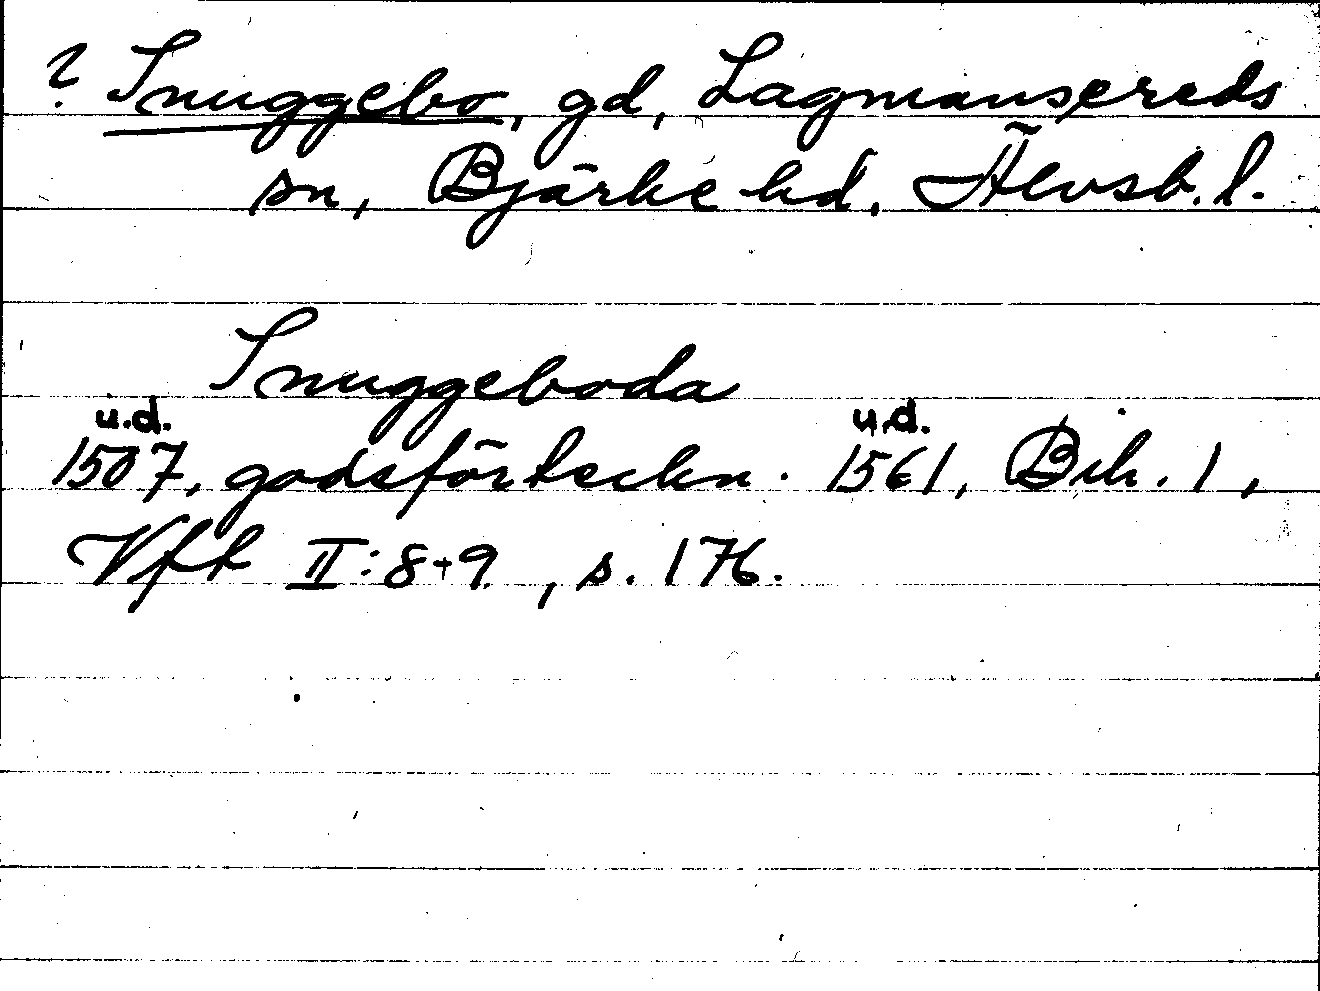 ? Snuggebo, gd, Lagmansereds
sn, Bjärke hd, Älvsb. l.
Snuggeboda
u.d. u.d.
1507, godsförteckn. 1561, Bih. 1,
Vft II:8+9, s. 176.